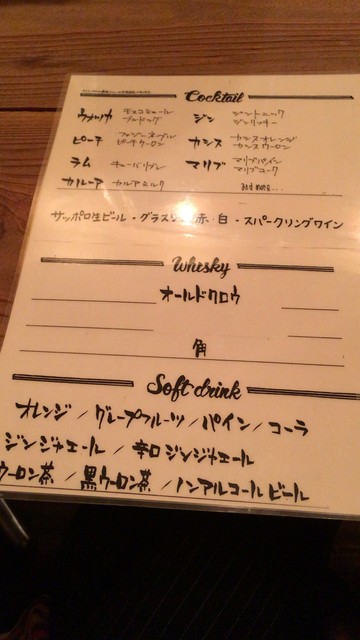 Cocktail
ウォッカ モスコミュール ブルドッグ ジン ジントニック ジンリッキー
ピーチ ファジーネーブル ピーチウーロン カシス カシスオレンジ カシスウーロン
ラム キューバリブレ マリブ マリブパイン マリブコーク
カルーア カルアミルク and more...
サッポロ生ビール・グラスワイン 赤・白・スパークリングワイン
Whisky
オールドクロウ
角
Soft drink
オレンジ / グレープフルーツ / パイン / コーラ
ジンジャエール / 辛口ジンジャエール
ウーロン茶 / 黒ウーロン茶 / ノンアルコールビール